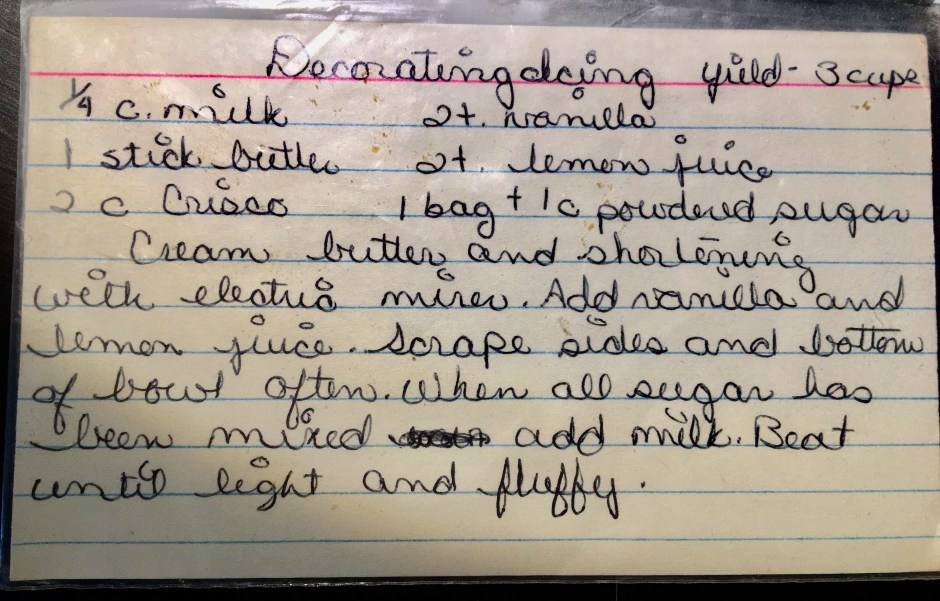 Decorating Icing yield - 3 cups
1/4 c. milk 2 t. vanilla
1 stick butter 2 t. lemon juice
2 c Crisco 1 bag + 1 c powdered sugar
Cream butter and shortening
with electric mixer. Add vanilla and
lemon juice. Scrape sides and bottom
of bowl often. When all sugar has
been mixed add milk. Beat
until light and fluffy.